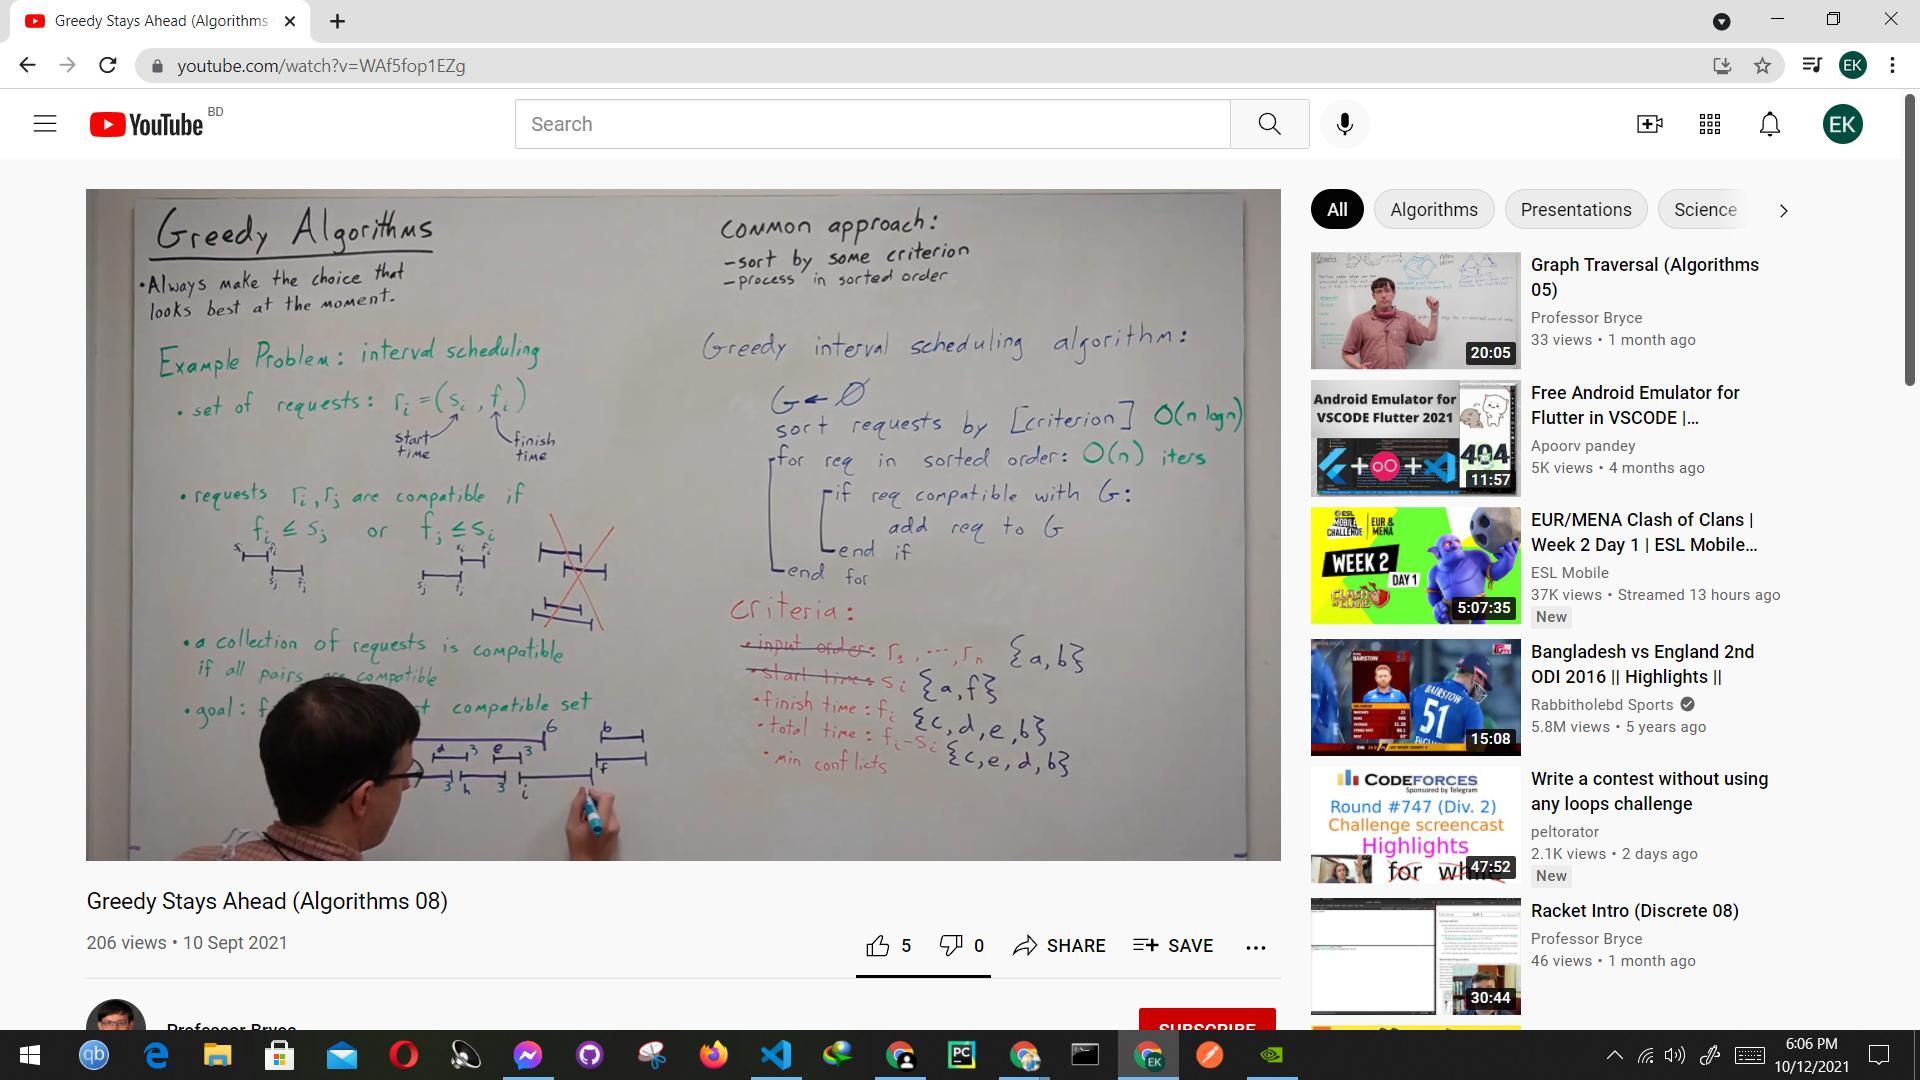 Greedy Stays Ahead (Algorithms
youtube.com/watch?v=WAf5fop1EZg
EK
YouTube BD
Search
EK
Greedy Algorithms
•Always make the choice that
looks best at the moment.
Example Problem: interval scheduling
• set of requests: ri = (si, fi)
start time
finish time
• requests ri, rj are compatible if
fi ≤ sj or fj ≤ si
si fi
sj fj
si fi
sj fj
• a collection of requests is compatible
if all pairs are compatible
• goal: f
compatible set
6 b
d 3 e 3
3 h 3 i f
Common approach:
-sort by some criterion
-process in sorted order
Greedy interval scheduling algorithm:
G ← ∅
sort requests by [criterion] O(n log n)
for req in sorted order: O(n) iters
if req compatible with G:
add req to G
end if
end for
Criteria:
• input order: r1, ..., rn {a,b}
• start time: si {a,f}
• finish time: fi {c,d,e,b}
• total time: fi-si {c,e,d,b}
• min conflicts
Greedy Stays Ahead (Algorithms 08)
206 views • 10 Sept 2021
5 0 SHARE SAVE
Professor Bryce
SUBSCRIBE
All Algorithms Presentations Science
20:05
Graph Traversal (Algorithms
05)
Professor Bryce
33 views • 1 month ago
Android Emulator for
VSCODE Flutter 2021
404
11:57
Free Android Emulator for
Flutter in VSCODE |...
Apoorv pandey
5K views • 4 months ago
ESL
MOBILE
CHALLENGE
EUR &
MENA
WEEK 2
DAY 1
CLASH OF CLANS
5:07:35
EUR/MENA Clash of Clans |
Week 2 Day 1 | ESL Mobile...
ESL Mobile
37K views • Streamed 13 hours ago
New
BAIRSTOW
BAIRSTOW
51
15:08
Bangladesh vs England 2nd
ODI 2016 || Highlights ||
Rabbitholebd Sports
5.8M views • 5 years ago
CODEFORCES
Sponsored by Telegram
Round #747 (Div. 2)
Challenge screencast
Highlights
for while
47:52
Write a contest without using
any loops challenge
peltorator
2.1K views • 2 days ago
New
30:44
Racket Intro (Discrete 08)
Professor Bryce
46 views • 1 month ago
qb
PC
EK
6:06 PM
10/12/2021